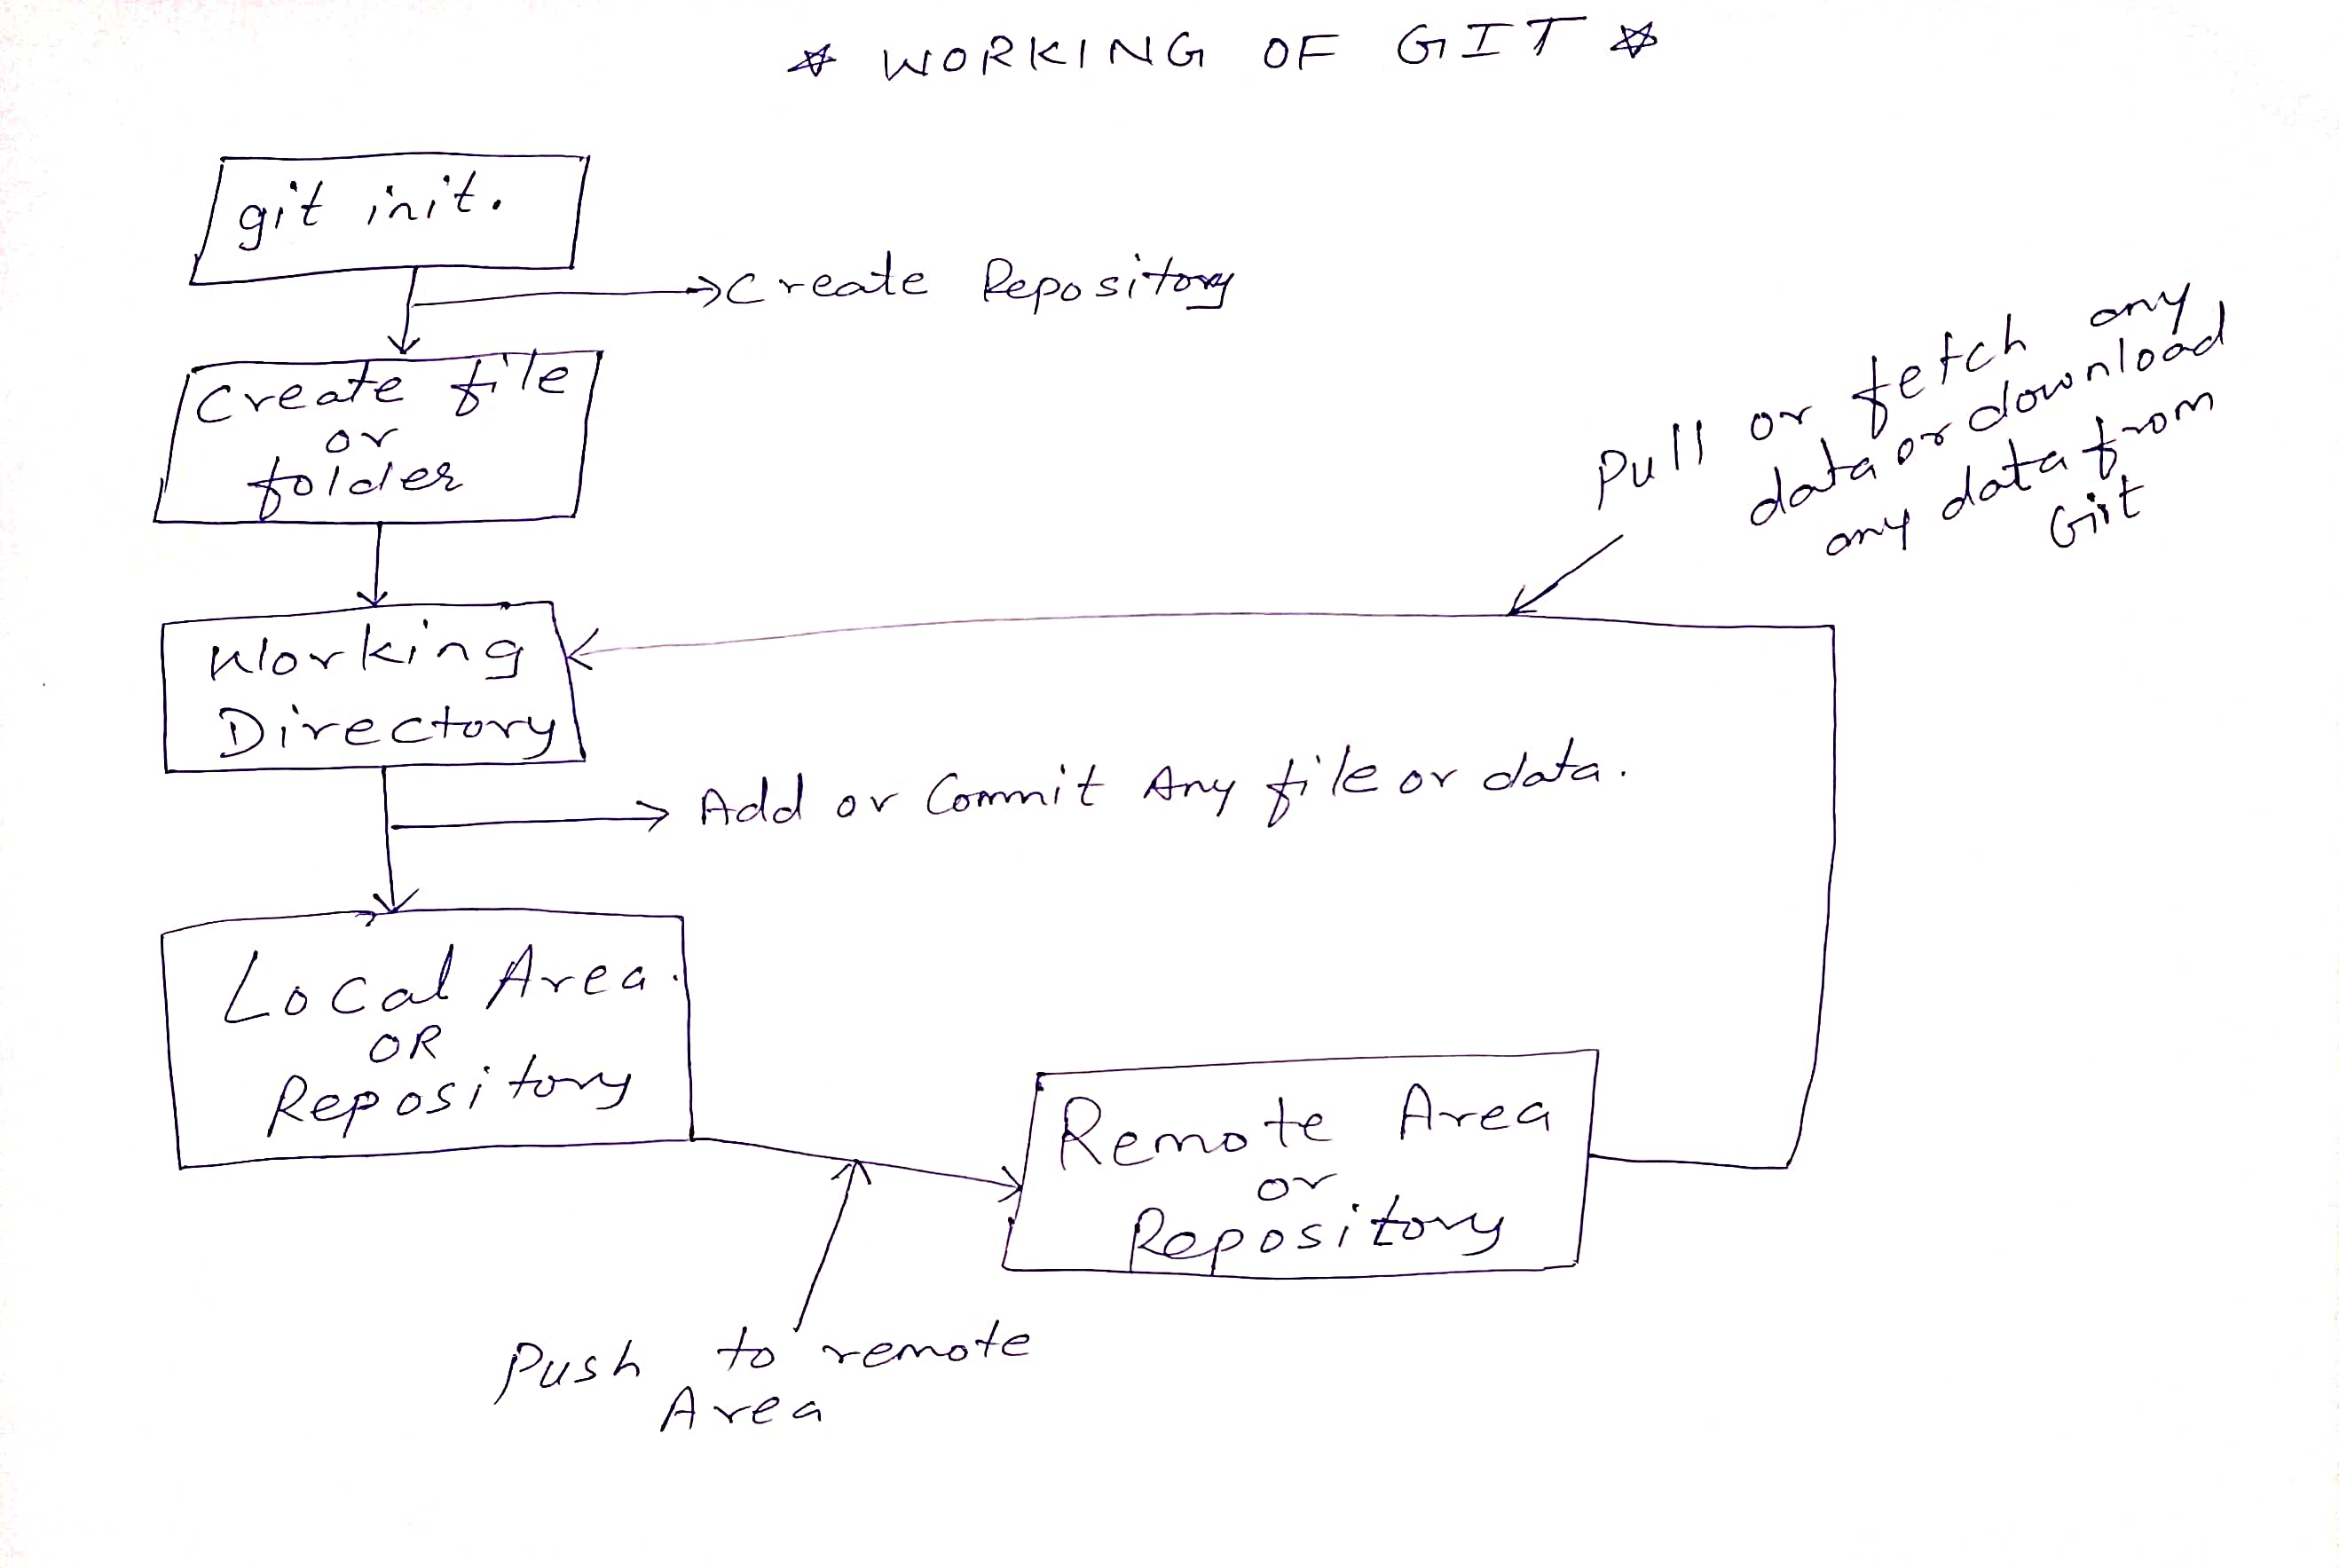 WORKING OF GIT
git init.
Create Repository
Create file
or
folder
Pull or fetch any
data or download
any data from
Git
Working
Directory
Add or Commit Any file or data.
Local Area.
OR
Repository
Remote Area
or
Repository
Push to remote
Area